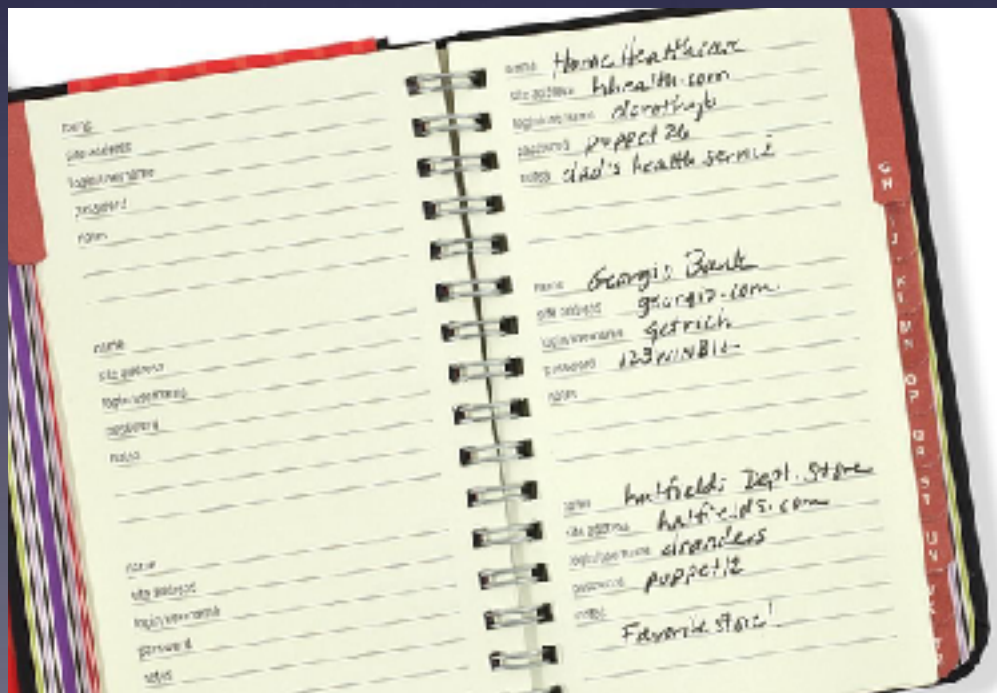 name
site address
login/username
password
notes
name
site address
login/username
password
notes
name
site address
login/username
password
notes
name Home Healthcare
site address hhealth.com
login/username dorothyb
password puppet26
notes dad's health service
name Georgis Bank
site address georgis.com
login/username getrich
password
notes
notes hatfields Dept. Store
site address hatfields.com
login/username dranders
password puppet12
notes
Favorite store!
GH
IJ
KL
MN
OP
QR
ST
UV